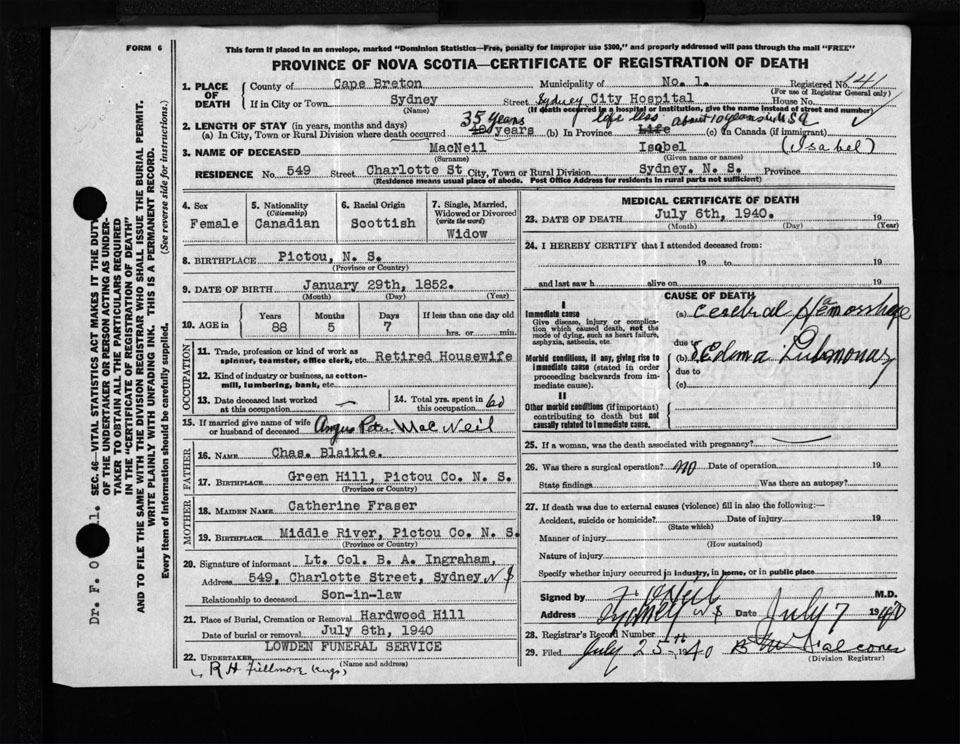 FORM 6
This form if placed in an envelope, marked "Dominion Statistics—Free, penalty for improper use $300," and properly addressed will pass through the mail "FREE"
PROVINCE OF NOVA SCOTIA—CERTIFICATE OF REGISTRATION OF DEATH
1. PLACE OF DEATH
County of Cape Breton Municipality of No. 1. Registered No. 141
(For use of Registrar General only)
If in City or Town Sydney Street Sydney City Hospital House No.
(Name) (If death occurred in a hospital or institution, give the name instead of street and number)
2. LENGTH OF STAY (in years, months and days) 35 Years life less about 10 years in USA
(a) In City, Town or Rural Division where death occurred years (b) In Province Life (c) in Canada (if immigrant)
3. NAME OF DECEASED MacNeil Isobel (Isabel)
(Surname) (Given name or names)
RESIDENCE No. 549 Street Charlotte St City, Town or Rural Division Sydney. N. S. Province
(Residence means usual place of abode. Post Office Address for residents in rural parts not sufficient)
4. Sex
Female
5. Nationality
(Citizenship)
Canadian
6. Racial Origin
Scottish
7. Single, Married, Widowed or Divorced
(write the word)
Widow
8. BIRTHPLACE Pictou, N. S.
(Province or Country)
9. DATE OF BIRTH January 29th, 1852.
(Month) (Day) (Year)
10. AGE in
Years Months Days If less than one day old
88 5 7 hrs. or min.
OCCUPATION
11. Trade, profession or kind of work as spinner, teamster, office clerk, etc. Retired Housewife
12. Kind of industry or business, as cotton-mill, lumbering, bank, etc.
13. Date deceased last worked at this occupation —
14. Total yrs. spent in this occupation 60
15. If married give name of wife or husband of deceased Angus Peter MacNeil
FATHER
16. NAME Chas. Blaikie.
17. BIRTHPLACE Green Hill, Pictou Co. N. S.
(Province or Country)
MOTHER
18. MAIDEN NAME Catherine Fraser
19. BIRTHPLACE Middle River, Pictou Co. N. S.
(Province or Country)
20. Signature of informant Lt. Col. B. A. Ingraham,
Address 549, Charlotte Street, Sydney N S
Relationship to deceased Son-in-law
21. Place of Burial, Cremation or Removal Hardwood Hill
Date of burial or removal July 8th, 1940
LOWDEN FUNERAL SERVICE
22. UNDERTAKER
(Name and address)
R H Fillmore
MEDICAL CERTIFICATE OF DEATH
23. DATE OF DEATH July 6th, 1940. 19
(Month) (Day) (Year)
24. I HEREBY CERTIFY that I attended deceased from:
19 to 19
and last saw h alive on 19
CAUSE OF DEATH
I
Immediate cause
Give disease, injury or complication which caused death, not the mode of dying, such as heart failure, asphyxia, asthenia, etc.
(a) Cerebral Hemorrhage
due to
Morbid conditions, if any, giving rise to immediate cause (stated in order proceeding backwards from immediate cause).
(b) Edema Pulmonary
due to
(c)
II
Other morbid conditions (if important) contributing to death but not causally related to immediate cause.
25. If a woman, was the death associated with pregnancy? —
26. Was there a surgical operation? NO Date of operation 19
State findings Was there an autopsy?
27. If death was due to external causes (violence) fill in also the following:—
Accident, suicide or homicide? Date of injury 19
(State which)
Manner of injury
(How sustained)
Nature of injury
Specify whether injury occurred in industry, in home, or in public place
Signed by F. O'Neil M.D.
Address Sydney N S Date July 7 1940
28. Registrar's Record Number
29. Filed July 25th 1940
(Division Registrar)
SEC. 46—VITAL STATISTICS ACT MAKES IT THE DUTY
OF THE UNDERTAKER OR PERSON ACTING AS UNDER-
TAKER TO OBTAIN ALL THE PARTICULARS REQUIRED
IN THE "CERTIFICATE OF REGISTRATION OF DEATH"
AND TO FILE THE SAME WITH THE DIVISION REGISTRAR WHO SHALL ISSUE THE BURIAL PERMIT.
WRITE PLAINLY WITH UNFADING INK. THIS IS A PERMANENT RECORD.
Every item of Information should be carefully supplied. (See reverse side for instructions.)
Dr. F. O